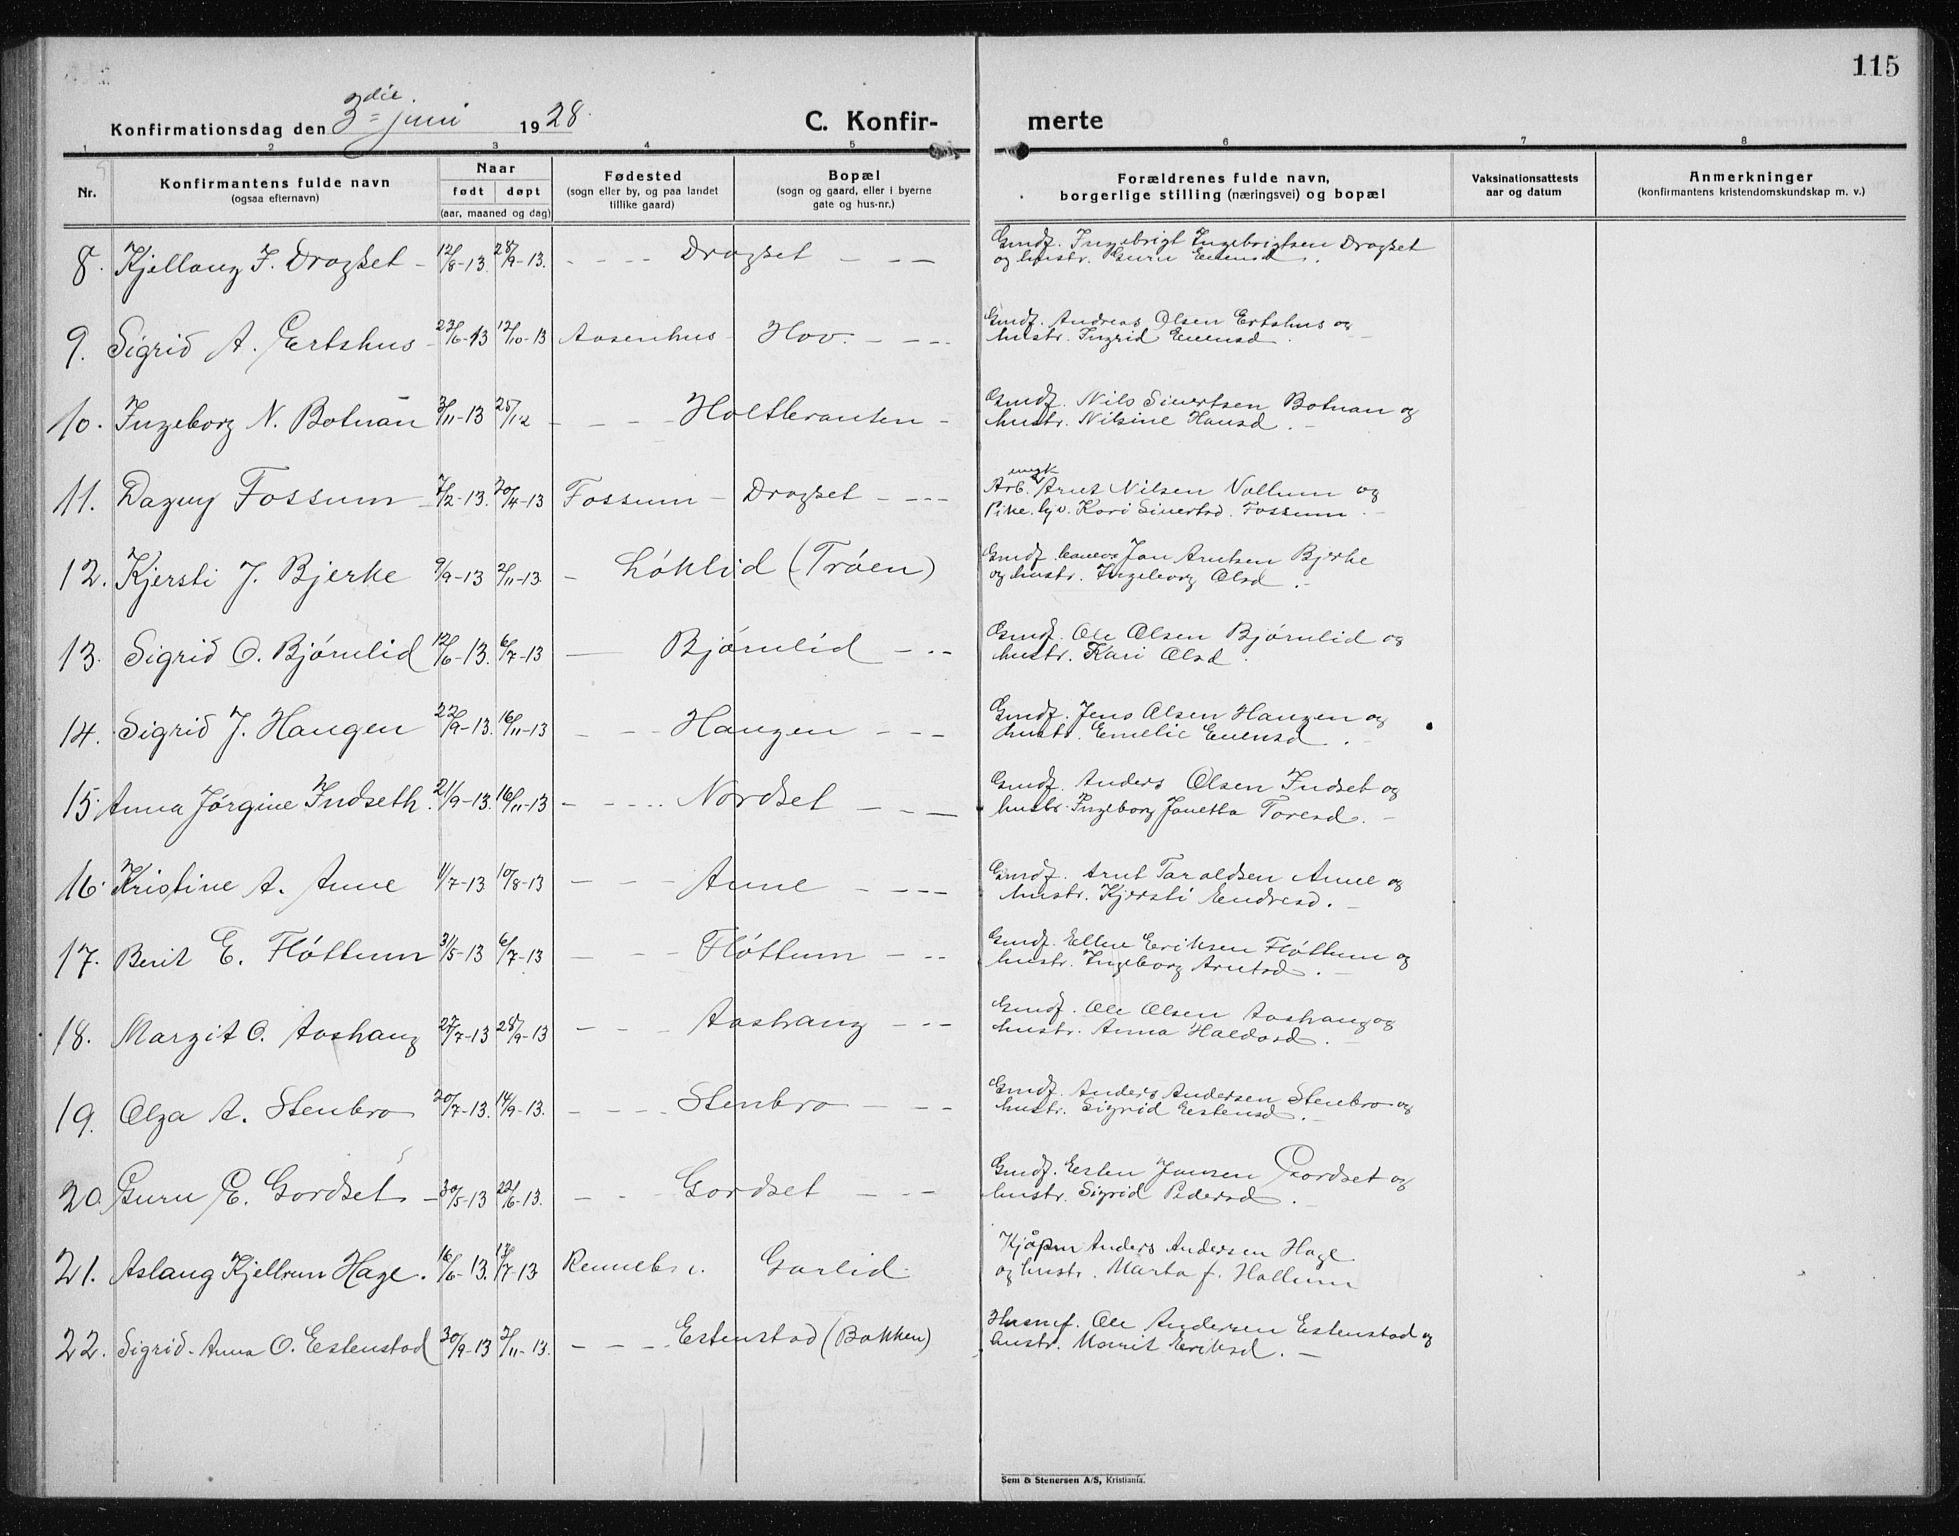 115
3die juni
Konfirmationsdag den 1928.
C. Konfir- merte
1 2 3 4 5 6 7 8
Nr. Konfirmantens fulde navn (ogsaa efternavn) Naar født døpt (aar, maaned og dag) Fødested (sogn eller by, og paa landet tillike gaard) Bopæl (sogn og gaard, eller i byerne gate og hus-nr.) Forældrenes fulde navn, borgerlige stilling (næringsvei) og bopæl Vaksinationsattests aar og datum Anmerkninger (konfirmantens kristendomskundskap m. v.)
8. Kjellaug I. Dragset - 12/8-13. 28/9-13. - - - - Dragset - - - Gmdf. Ingebrigt Ingebrigtsen Dragset
og hustr. Guru Evensd.
9. Sigrid A. Ertshus - 23/6-13 12/10-13 Aasenhus - Hov. - - - Gmdf. Andreas Olsen Ertshus og
hustr. Ingrid Evensd.
10. Ingeborg N. Botnan 3/11-13 25/12 - - - - Holtbrauten - Gmdf. Nils Sivertsen Botnan og
hustr. Nilsine Hansd. -
11. Dagny Fossum - 7/2-13. 20/4-13 Fossum - Dragset - - - Arb. ungk. Arnt Nilsen Vollum og
Pike. Kari Sivertsd. Fossum. -
12. Kjersti J. Bjerke 9/9-13 2/11-13 - Løklid (Trøen) Gmdf Jon Arntsen Bjerke
og hustr. Ingeborg Olsd. -
13. Sigrid O. Bjørnlid 12/6-13. 6/7-13 - Bjørnlid - - - Gmdf. Ole Olsen Bjørnlid og
hustr. Kari Olsd.
14. Sigrid J. Haugen 22/9-13. 16/11-13 - - - Haugen - - - Gmdf. Jens Olsen Haugen og
hustr. Emelie Evensd. -
15. Anna Jørgine Indseth. 21/9-13. 16/11-13 - - - - Nordset - - - Gmdf. Anders Olsen Indset og
hustr. Ingeborg Janetta Toresd. -
16. Kristine A. Aune 1/7-13 10/8-13 - - - Aune - - - - Gmdf. Arnt Taraldsen Aune og
hustr. Kjersti Endresd. -
17. Berit E. Fløttum 31/5-13 6/7-13 - - - Fløttum - - - Gmdf. Ellev Eriksen Fløttum og
hustr. Ingeborg Arntsd. -
18. Margit O. Aashaug 27/7-13 28/9-13 - - - Aashaug - - - Gmdf. Ole Olsen Aashaug og
hustr. Anna Haldosd. -
19. Olga A. Stenbro 20/7-13. 14/9-13. - - - - Stenbro - - Gmdf. Anders Andersen Stenbro og
hustr. Sigrid Estensd. -
20. Guru E. Gordset - 30/5-13 22/6-13. - - - Gordset - - - Gmdf. Esten Jonsen Gordset og
hustr. Sigrid Pedersd. -
21. Aslaug Kjellrun Hage. 16/6-13. 13/7-13 Rennebu. Garlid Kjøpm Anders Andersen Hage
og hustr. Marta f. Hallum
22. Sigrid-Anna O. Estenstad 30/9-13 2/11-13. - - - - Estenstad (Bakken) Husmf. Ole Andersen Estenstad og
hustr. Marit Eriksd. -
Sem & Stenersen A/S, Kristiania.